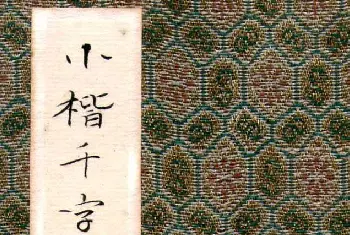 小楷千字